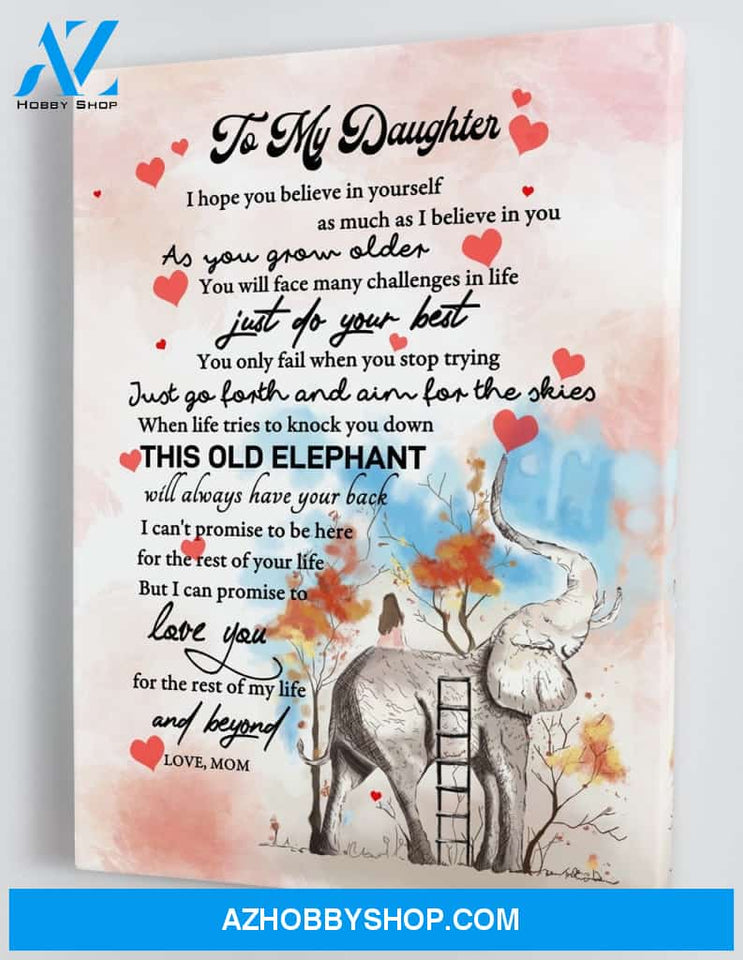 AZ
HOBBY SHOP
To My Daughter
I hope you believe in yourself
as much as I believe in you
As you grow older
You will face many challenges in life
just do your best
You only fail when you stop trying
Just go forth and aim for the skies
When life tries to knock you down
THIS OLD ELEPHANT
will always have your back
I can't promise to be here
for the rest of your life
But I can promise to
love you
for the rest of my life
and beyond
LOVE, MOM
AZHOBBYSHOP.COM